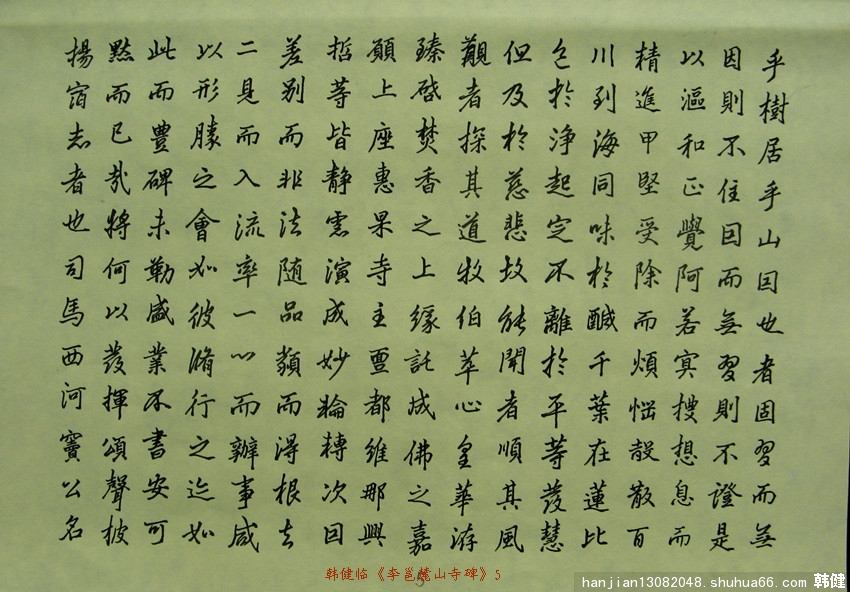 乎樹居乎山因也者固習而無
因則不住因而無習則不證是
以漚和正覺阿若冥搜想息而
精進甲堅受除而煩惱殼散百
川到海同味於醎千葉在蓮比
色於净起定不離於平等發慧
但及於慈悲故能開者順其風
觀者探其道牧伯萃心皇華游
臻啓焚香之上緣託成佛之嘉
願上座惠杲寺主亶都維那興
哲等皆静慮演成妙輪轉次因
差别而非法随品類而得根去
二見而入流率一心而辦事咸
以形勝之會如彼脩行之迹如
此而豊碑未勒盛業不書安可
黙而已哉將何以發揮頌聲披
揚宿志者也司馬西河竇公名
韩健临《李邕麓山寺碑》5
5
hanjian13082048.shuhua66.com 韩健